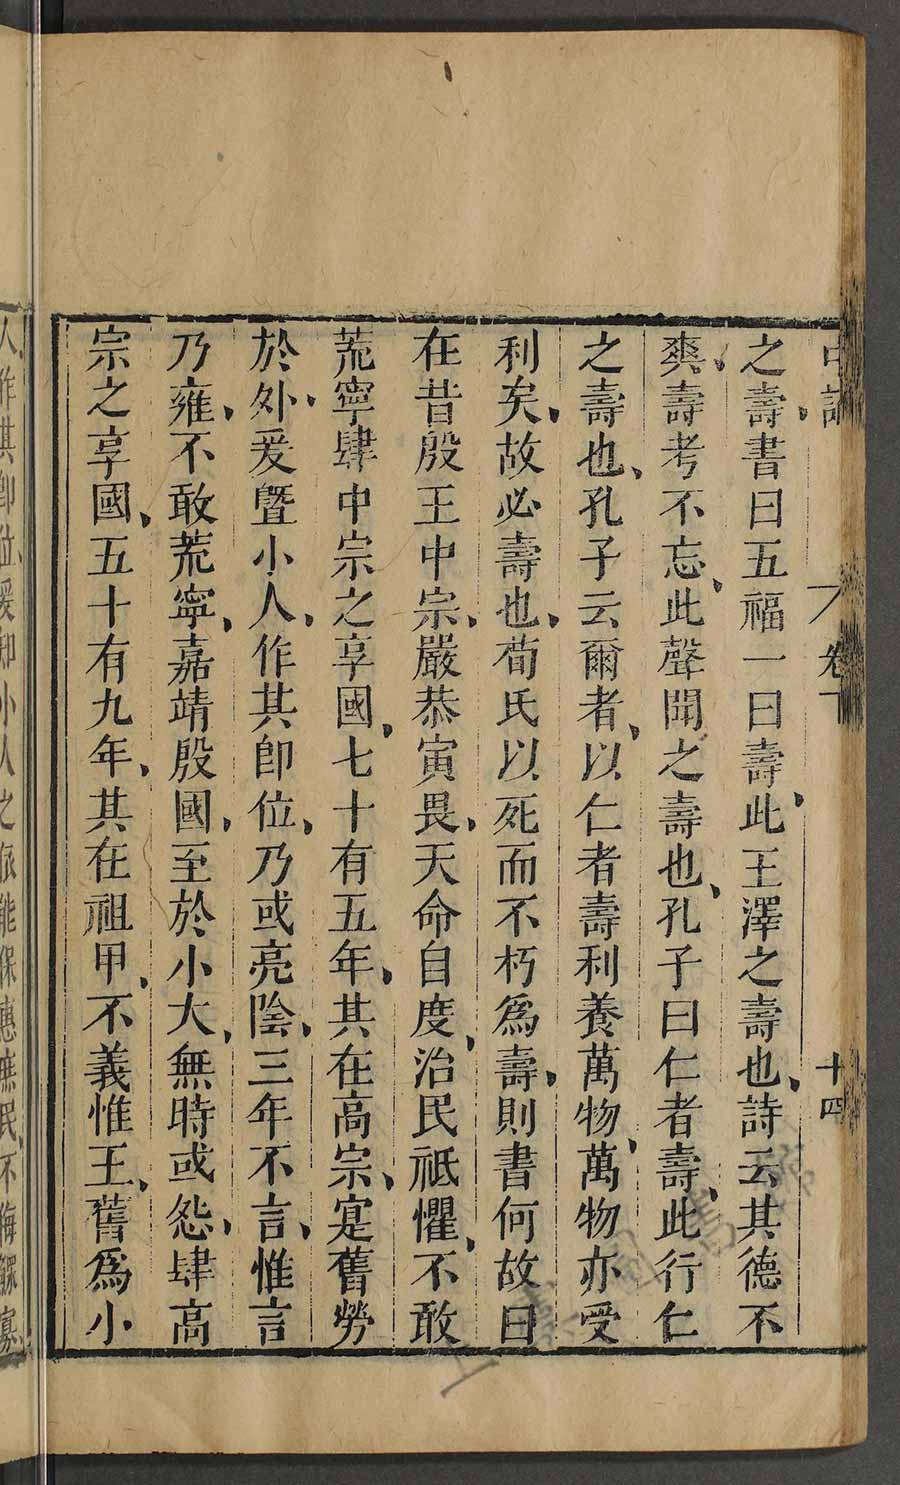 中論
卷下
十四
之壽、書曰五福一曰壽、此王澤之壽也、詩云其德不
爽、壽考不忘、此聲聞之壽也、孔子曰仁者壽、此行仁
之壽也、孔子云爾者、以仁者壽利養萬物、萬物亦受
利矣、故必壽也、荀氏以死而不朽爲壽、則書何故曰
在昔殷王中宗、嚴恭寅畏、天命自度、治民祗懼、不敢
荒寧肆中宗之享國、七十有五年、其在高宗、寔舊勞
於外、爰曁小人、作其卽位、乃或亮陰、三年不言、惟言
乃雍、不敢荒寧、嘉靖殷國、至於小大、無時或怨、肆高
宗之享國、五十有九年、其在祖甲、不義惟王、舊爲小
人、作其卽位、爰知小人之依能保惠庶民、不侮鰥寡